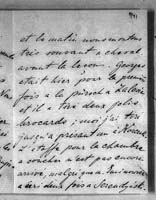 et le matin nous montons
très souvent à cheval
avant la leçon. Georges
était hier pour la première
fois à la
et il a tiré deux jolis
brocards; moi j'ai tiré
jusqu'à présent un
L'étoffe pour la chambre
à coucher n'est pas encore
arrivée, malgré que
a écrit deux fois à